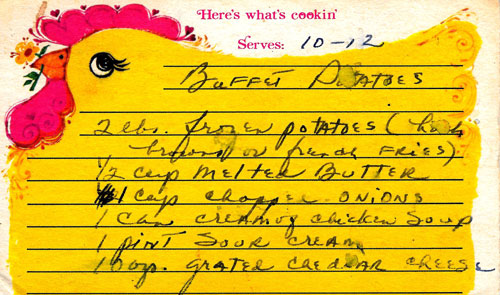 Here's what's cookin'
Serves: 10-12
Buffet Potatoes
2 lbs. frozen potatoes (hash
browns or french fries)
1/2 cup melted butter
1 cup chopped onions
1 can cream of chicken soup
1 pint sour cream
10 oz. grated cheddar cheese